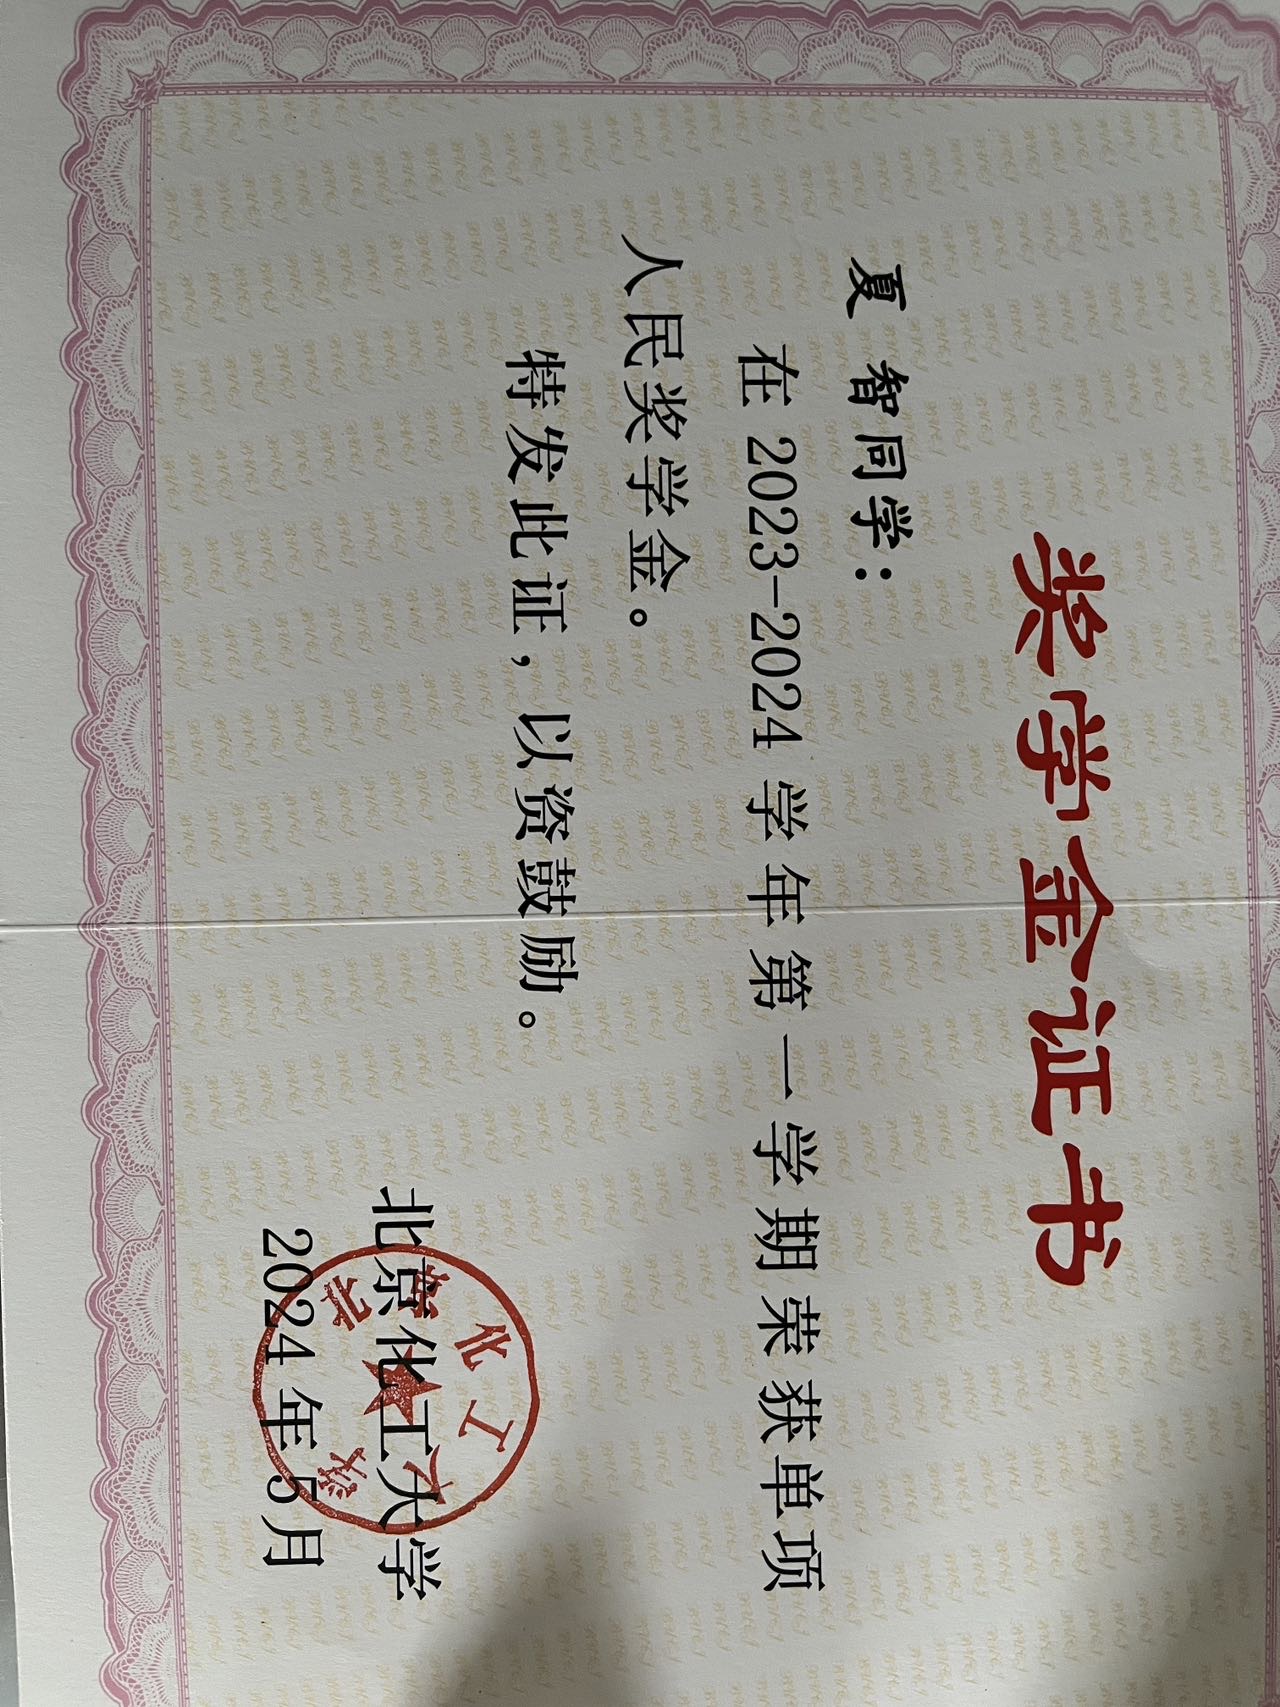 奖学金证书
夏 智同学：
在 2023-2024 学年第一学期荣获单项
人民奖学金。
特发此证，以资鼓励。
北京化工大学
2024 年 5 月